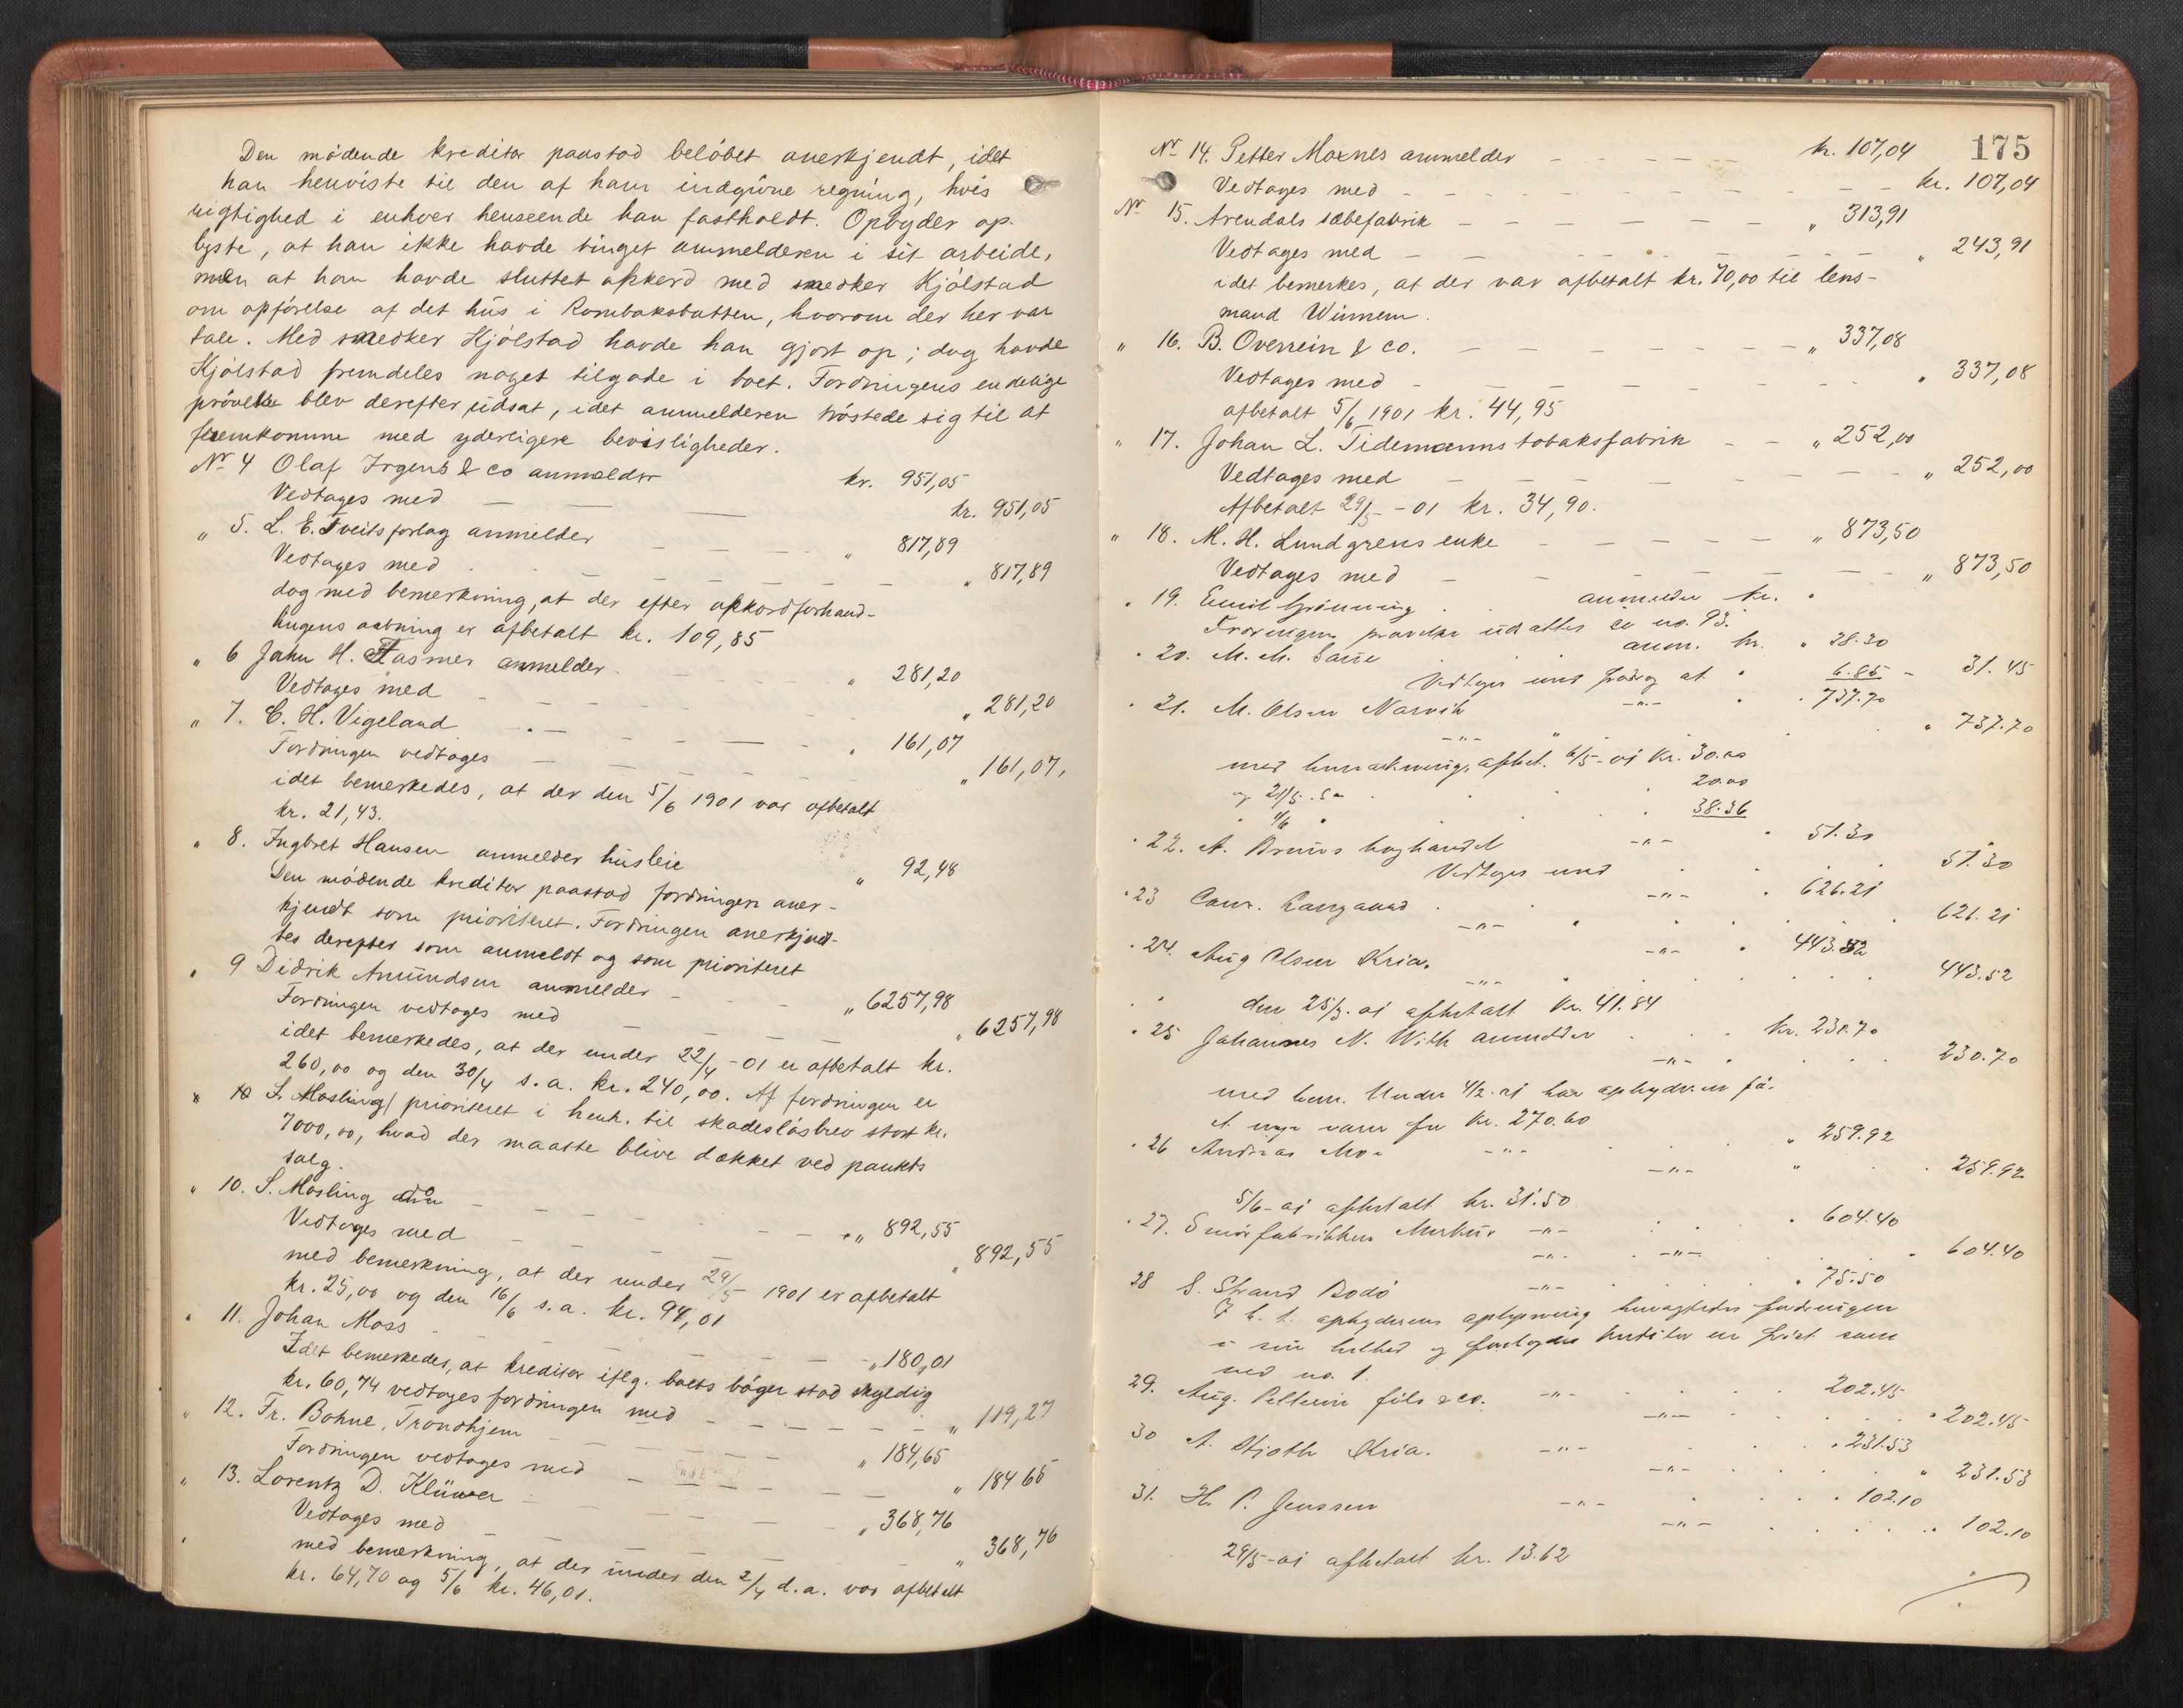 Den mödende kreditor paastod belöbet anerkjendt, idet
han henviste til den af ham indgivne regning, hvis
rigtighed i enhver henseende han fastholdt. Opbyder op-
lyste, at han ikke havde tinget anmelderen i sit arbeide,
men at han havde sluttet akkord med snedker Kjölstad
om opförelse af det hus i Rombaksbotten, hvorom der her var
tale. Med snedker Kjölstad havde han gjort op; dog havde
Kjölstad fremdeles noget tilgode i boet. Fordringens endelige
prövelse blev derefter udsat, idet anmelderen tröstede sig til at
fremkomme med yderligere bevisligheder.
No 4 Olaf Irgens & co anmelder kr. 951,05
Vedtages med — — kr. 951,05
" 5. L. E. Tveitsforlag anmelder - - - " 817,89
Vedtages med - - - - - - " 817,89
dog med bemerkning, at der efter akkordforhand-
lingens aabning er afbetalt kr. 109,85
" 6 Jahn H. Fasmer anmelder - - - " 281,20
Vedtages med - - - - - " 281,20
" 7. C. H. Vigeland - - - - " 161,07
Fordringen vedtages - - - - " 161,07,
idet bemerkedes, at der den 5/6 1901 var afbetalt
kr. 21,43.
" 8. Ingbret Hansen anmelder husleie " 92,48
Den mödende kreditor paastod fordringen aner-
kjendt som prioriteret. Fordringen anerkjend-
tes derefter som anmeldt og som prioriteret
" 9 Didrik Amundsen anmelder - - - " 6257,98
Fordringen vedtages med - - - " 6257,98
idet bemerkedes, at der under 22/4 -01 er afbetalt kr.
260,00 og den 30/4 s. a. kr. 240,00. Af fordringen er
" 10 S. Mosling/ prioriteret i henh. til skadeslösbrev stort kr.
7000,00, hvad der maatte blive dækket ved pantets
salg.
" 10. S. Mosling - - - - - " 892,55
Vedtages med - - - - - " 892,55
med bemerkning, at der under 29/5 1901 er afbetalt
kr. 25,00 og den 16/6 s. a. kr. 94,01
" 11. Johan Moss - - - - - " 180,01
Idet bemerkedes, at kreditor iflg. boets böger stod skyldig
kr. 60,74 vedtages fordringen med - - - - " 119,27
" 12. Fr. Bohne, Trondhjem - - - - " 184,65
Fordringen vedtages med - - - - " 184 65
" 13. Lorentz D. Klüwer - - - - " 368,76
Vedtages med - - - - - " 368,76
med bemerkning, at der under den 2/4 d. a. var afbetalt
kr. 64,70 og 5/6 kr. 46,01.
175
No 14. Petter Moxnes anmelder - - - - kr. 107,04
Vedtages med - - - - - - kr. 107,04
No 15. Arendals sæbefabrik - - - - - " 313,91
Vedtages med - - - - - - " 243,91
idet bemerkes, at der var afbetalt kr. 70,00 til lens-
mand Winnem.
" 16. B. Overrein & co. - - - - - " 337,08
Vedtages med - - - - - - " 337,08
afbetalt 5/6 1901 kr. 44,95
" 17. Johan L. Tidemanns tobaksfabrik - - " 252,00
Vedtages med - - - - - - " 252,00
Afbetalt 29/5 -01 kr. 34,90.
" 18. M. H. Lundgrens enke - - - - - " 873,50
Vedtages med - - - - - - " 873,50
" 19. Emil Grönning . . anmelder kr. "
Fordringens prøvelse udsattes no. 93.
" 20. M. M. anm. kr. " 28.30
Vedtages med at " 6.85 - 31.45
" 21. M. Olsen Narvik -"- " 737.70
-"- " " 737.70
med bemærkning, afbet. 6/5-01 kr. 30.00
og 21/5 . s a . . 20.00
" 4/6 " . . 38.36
" 22. A. Bruns boghandel -"- " 51.30
Vedtages med . . . " 51.30
" 23 Conr. Langaard . -"- " 626.21
-"- " . . . 626.21
" 24. Aug Olsen Kria. -"- " 443.52
-"- " . . . 443.52
" " den 25/3-01 afbetalt kr. 41.84
" 25 Johannes N. With anmelder . . kr. 230.70
-"- . . . 230.70
med bem. Under 4/2-01 har opbyderen få-
t nye varer for kr. 270.60
" 26 Andreas Moe -"- . . " 259.92
-"- " . 259.92
5/6-01 afbetalt kr. 31.50
" 27. Smörfabrikken Merkur -"- . . " 604.40
-"- . -"- . . " 604.40
28 S. Strand Bodö -"- . . " 75.50
I h. t. opbyderens oplysning fordringen
i sin helhed og kreditor en frist som
ved no. 1.
29. Aug. Pellerin fils & co. -"- . . 202.45
-"- . . . " 202.45
30 A. Hjoth Kria. -"- . . " 231.53
-"- . . " 231.53
31. H. P. Jenssen -"- . . " 102.10
-"- . . . " 102.10
29/5-01 afbetalt kr. 13.62